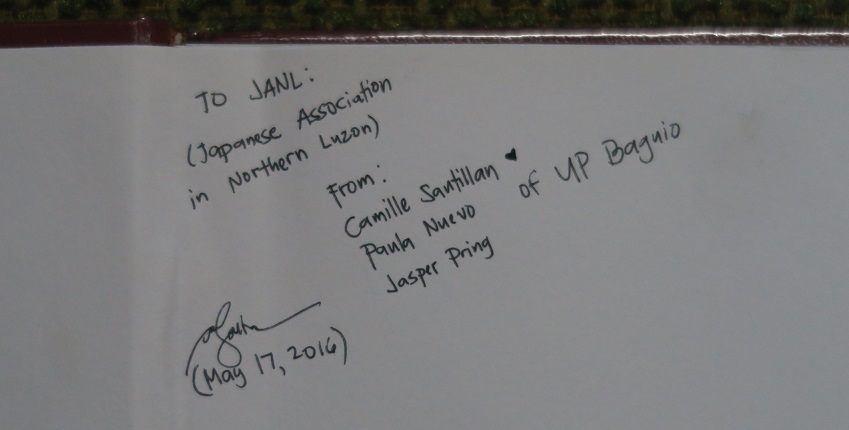 TO JANL:
(Japanese Association
in Northern Luzon)
From:
Camille Santillan ♥
Paula Nuevo
Jasper Pring
of UP Baguio
(May 17, 2016)